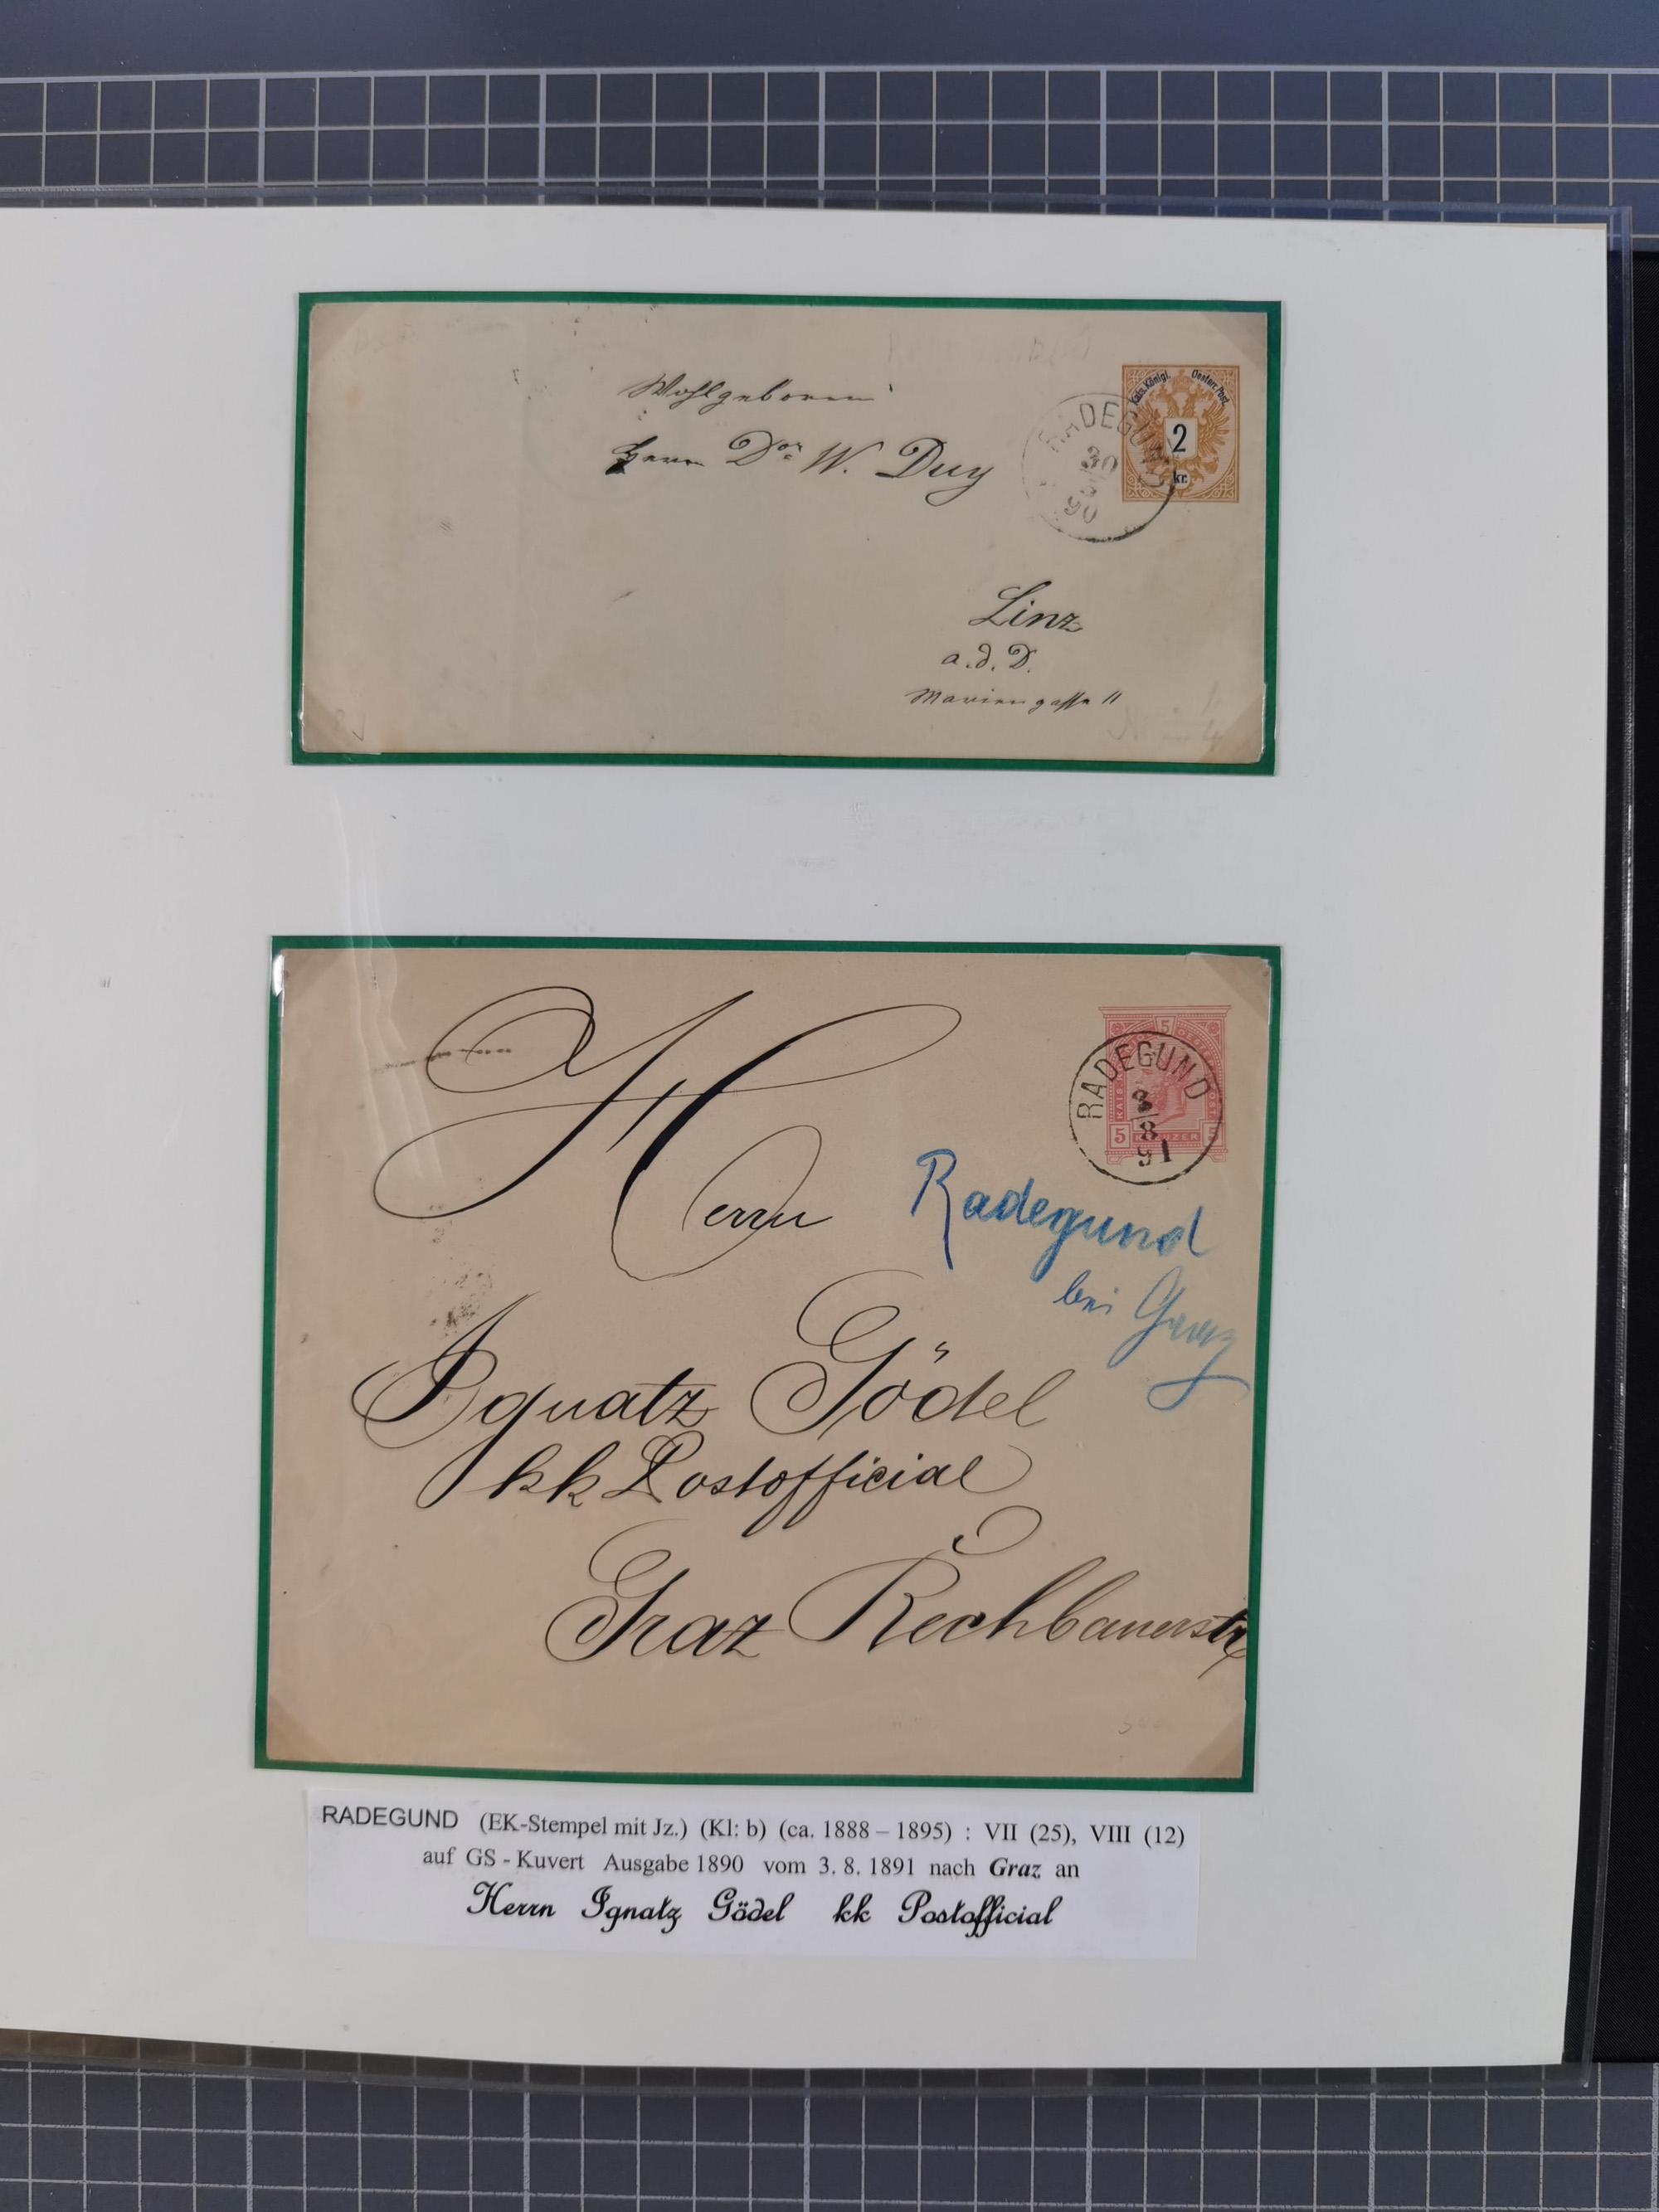 Wohlgeboren
Herrn Dor W. Duy
Kais. Königl. Oesterr. Post.
2
kr.
RADEGUND
30
5
90
Linz
a. d. D.
Mariengasse 11
Herrn
5
KREUZER
5
5
RADEGUND
3
8
91
Radegund
bei Graz
Ignatz Gödel
kk Postofficial
Graz Rechbauerstr
RADEGUND (EK-Stempel mit Jz.) (Kl: b) (ca. 1888 – 1895) : VII (25), VIII (12)
auf GS - Kuvert Ausgabe 1890 vom 3. 8. 1891 nach Graz an
Herrn Ignatz Gödel kk Postofficial